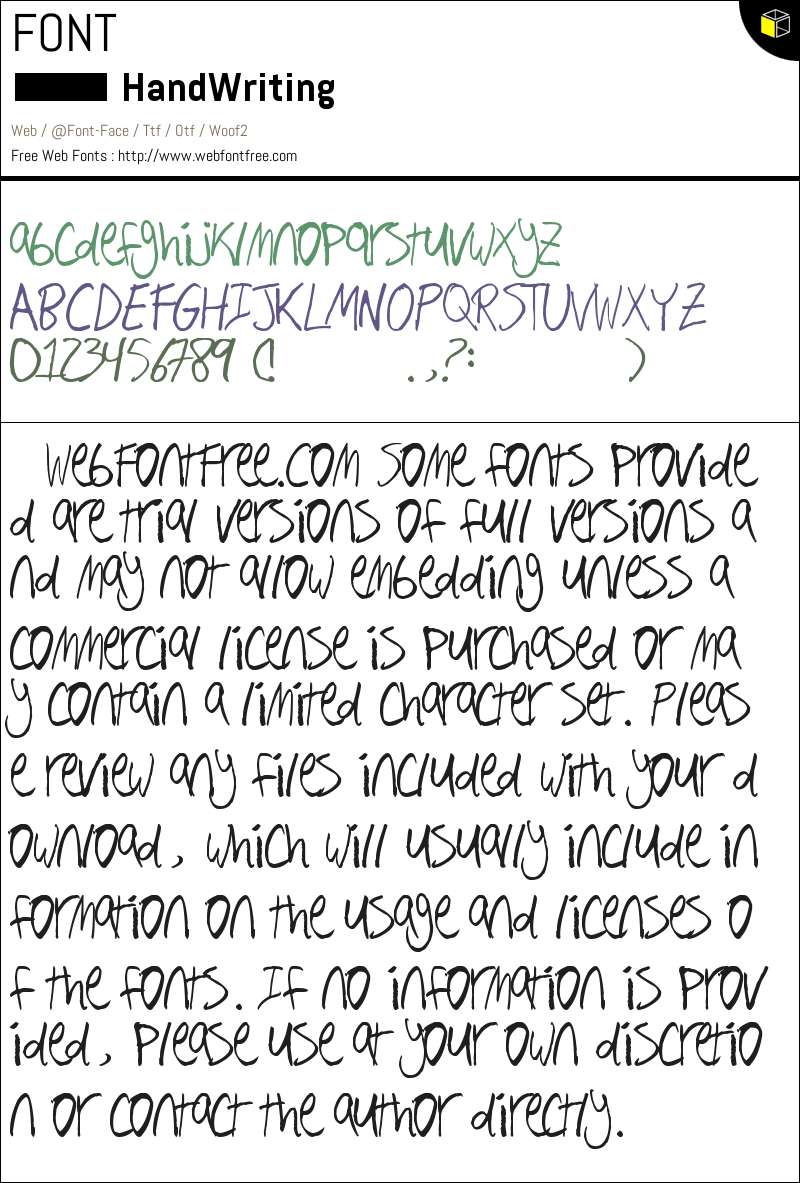 FONT
HandWriting
Web / @Font-Face / Ttf / Otf / Woof2
Free Web Fonts : http://www.webfontfree.com
abcdefghijklmnopqrstuvwxyz
ABCDEFGHIJKLMNOPQRSTUVWXYZ
0123456789 ( .,?: )
WebFontFree.Com Some fonts provide
d are trial versions of full versions a
nd may not allow embedding unless a
commercial license is purchased or ma
y contain a limited character set. Pleas
e review any files included with your d
ownload, which will usually include in
formation on the usage and licenses o
f the fonts. If no information is prov
ided, please use at your own discretio
n or contact the author directly.